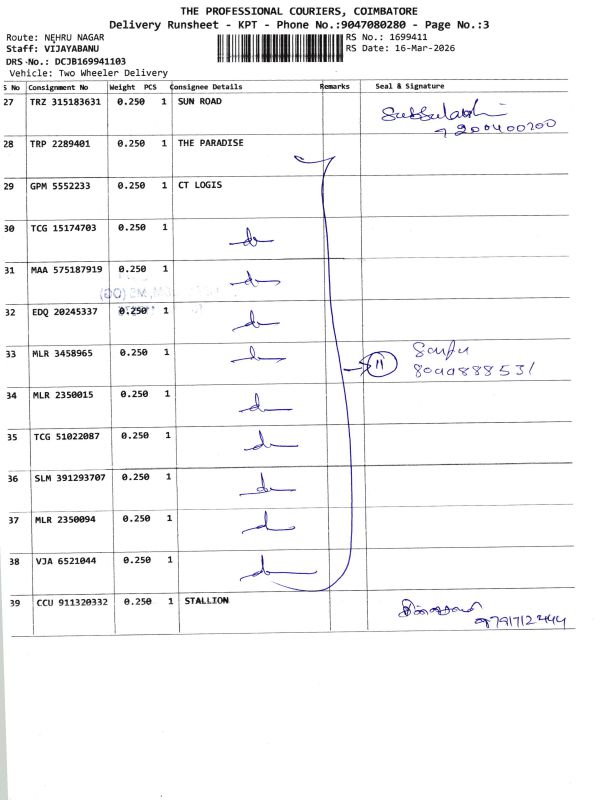 THE PROFESSIONAL COURIERS, COIMBATORE
Delivery Runsheet - KPT - Phone No.:9047080280 - Page No.:3
Route: NEHRU NAGAR
RS No.: 1699411
Staff: VIJAYABANU
RS Date: 16-Mar-2026
DRS No.: DCJB169941103
Vehicle: Two Wheeler Delivery
S No Consignment No Weight PCS Consignee Details Remarks Seal & Signature
27 TRZ 315183631 0.250 1 SUN ROAD
28 TRP 2289401 0.250 1 THE PARADISE
29 GPM 5552233 0.250 1 CT LOGIS
30 TCG 15174703 0.250 1
31 MAA 575187919 0.250 1
32 EDQ 20245337 0.250 1
33 MLR 3458965 0.250 1 11
34 MLR 2350015 0.250 1
35 TCG 51022087 0.250 1
36 SLM 391293707 0.250 1
37 MLR 2350094 0.250 1
38 VJA 6521044 0.250 1
39 CCU 911320332 0.250 1 STALLION
9791712444